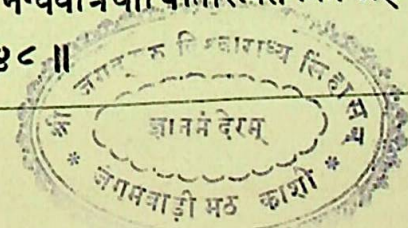 ४८ ॥
श्री जगद्गुरु विश्वाराध्य सिंहासन
ज्ञानमंदिरम्
* जंगमवाड़ी मठ काशी *